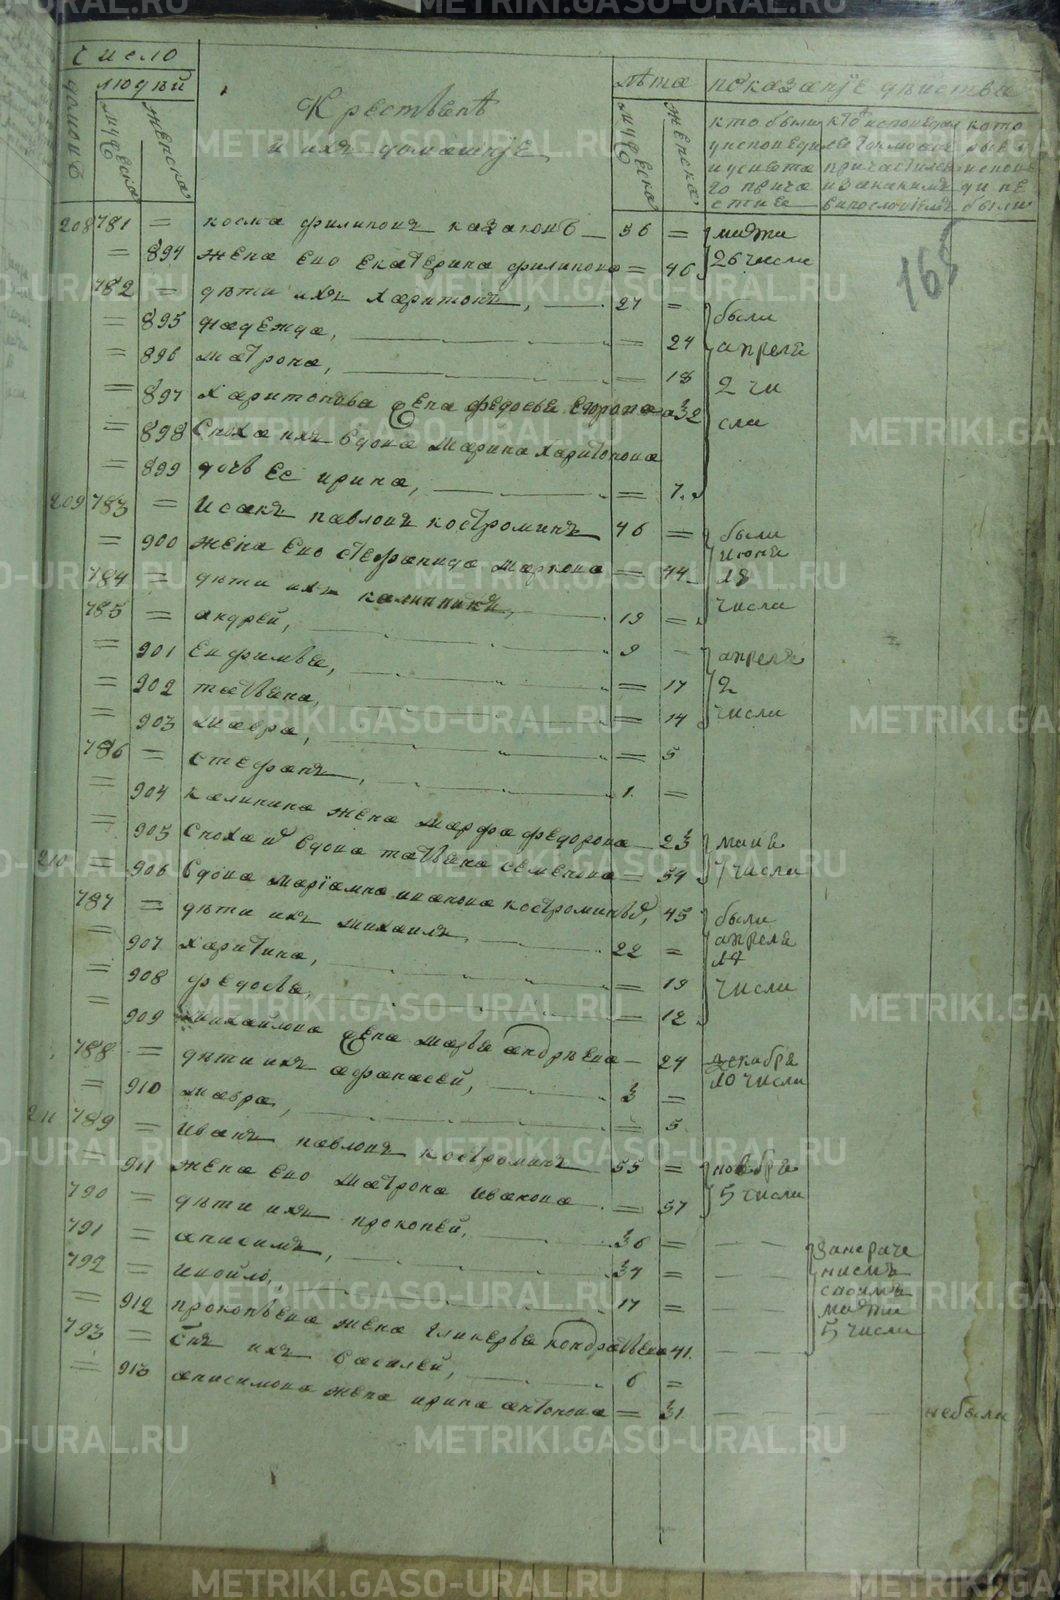 METRIKI.GASO-URAL.RU
число
людей
домовъ
мужеска
женска
Крестьянѣ
и ихъ домашнҍе
лѣта
мужеска
женска
показанҍе дѣиства
кто были
165
208 781 = косма филиповъ казаковъ 56 = марта
= 894 жена ево екатерина филипова = 46 26 числа
782 = дѣти ихъ харитонъ, 27 = были
= 895 надежда, = 24 апреля
= 896 матрона, = 18 2 чи
= 897 харитонова жена федосья 32 сла
= 898 Сноха ихъ вдова марина харитонова
= 899 дочь ее ирина, = 7
209 783 = Исакъ павловъ костроминъ 46 = были
= 900 жена ево стефанида маркова = 44 июня
784 = дѣти ихъ калинникъ, 19 = 18 числа
785 = андрей, 9 апреля
= 901 Евфимья, = 17 2
= 902 татьяна, = 14 числа
= 903 мавра, = 5
786 = стефанъ, 1 =
= 904 калинина жена марфа федорова 23 маия
= 905 Сноха вдова татьяна семенова = 54 7 числа
210 = 906 вдова марҍамна иванова костроминыхъ, 45 были
787 = дѣти ихъ михаилъ, 22 = апреля 17
= 907 харитина, = 19 числа
= 908 федосья, = 12
= 909 михайлова жена марья андрѣева 24 декабря
788 = дѣти ихъ афанасей, 3 = 10 числа
= 910 мавра, = 5
211 789 = Иванъ павловъ костроминъ 55 = ноября
= 911 жена ево матрона иванова = 57 5 числа
790 = дѣти ихъ прокопей, 36 =
791 = анисимъ, 34 =
792 = ивойло, 17 =
марта
5 числа
= 912 прокопьева жена гликерья кондратьева 41.
793 = Снъ ихъ василей, 6 =
= 913 анисимова жена ирина антонова = 31 небыли